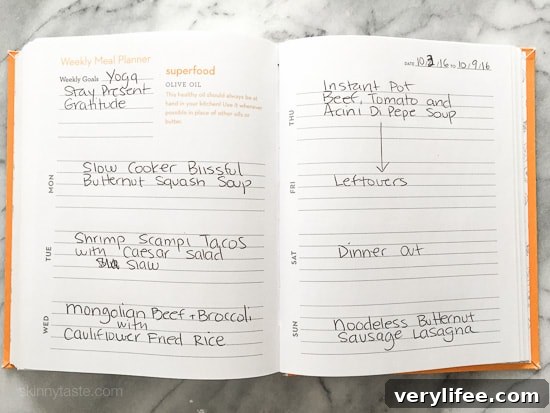 Weekly Meal Planner
Weekly Goals Yoga
Stay Present
Gratitude
superfood
OLIVE OIL
This healthy oil should always be at
hand in your kitchen! Use it whenever
possible in place of other oils or
butter.
MON
Slow Cooker Blissful
Butternut Squash Soup
TUE
Shrimp Scampi Tacos
with Caesar Salad
Slaw
WED
Mongolian Beef + Broccoli
with
Cauliflower Fried Rice
DATE 10.3.16 TO 10.9.16
THU
Instant Pot
Beef, Tomato and
Acini Di Pepe Soup
FRI
Leftovers
SAT
Dinner Out
SUN
Noodeless Butternut
Sausage Lasagna
skinnytaste.com
verylifee.com